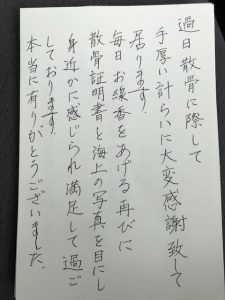 過日散骨に際して
手厚い計らいに大変感謝致して
居ります。
毎日お線香をあげる再びに
散骨証明書と海上の写真を目にし
身近かに感じられ満足して過ご
しております。
本当に有りがとうございました。